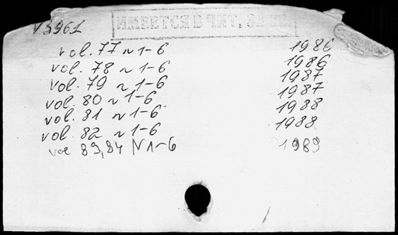 ИМЕЕТСЯ В ЧИТ.
vol. 77 N 1-6 1986
vol. 78 N 1-6 1986
vol. 79 N 1-6 1987
vol. 80 N 1-6 1987
vol. 81 N 1-6 1988
vol. 82 N 1-6 1988
vol 83,84 N 1-6 1989